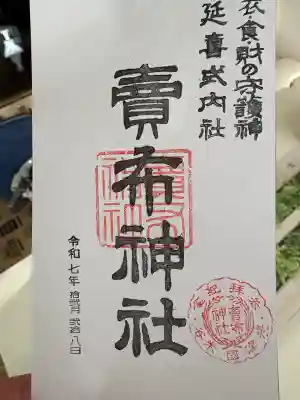 衣・食・財の守護神
延喜式内社
賣布神社
令和七年拾弐月弐拾八日